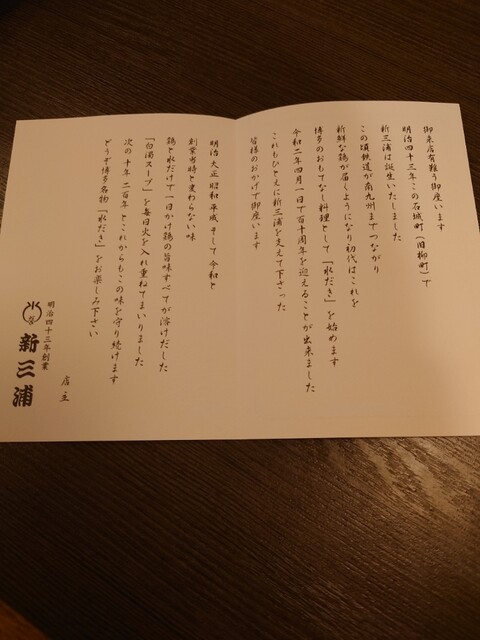 御来店有難う御座います
明治四十三年この石城町(旧柳町)で
新三浦は誕生いたしました
この頃鉄道が南九州までつながり
新鮮な鶏が届くようになり初代はこれを
博多のおもてなし料理として「水だき」を始めます
令和二年四月一日で百十周年を迎えることが出来ました
これもひとえに新三浦を支えて下さった
皆様のおかげで御座います
明治 大正 昭和 平成 そして令和と
創業当時と変わらない味
鶏と水だけで一日かけ鶏の旨味すべてが溶けだした
「白濁スープ」を毎日火を入れ重ねてまいりました
次の十年 二百年とこれからもこの味を守り続けます
どうぞ博多名物「水だき」をお楽しみ下さい
店主
明治四十三年創業
新三浦